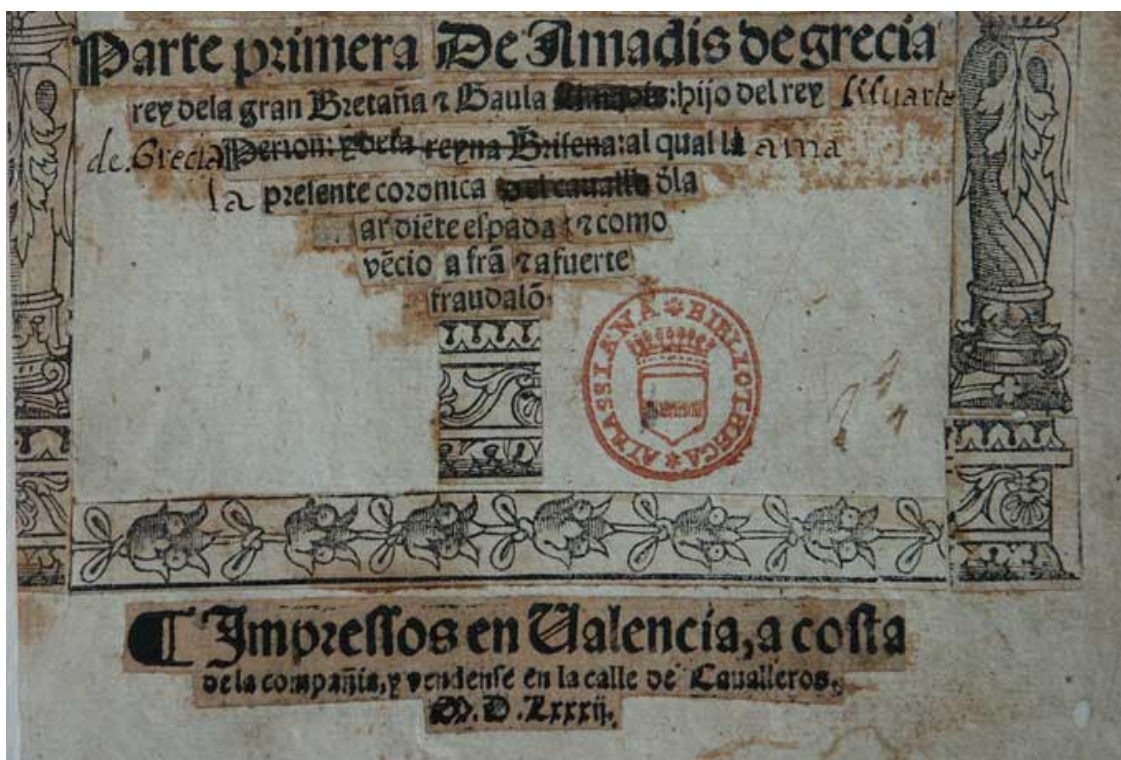 Parte primera De Amadis de grecia
rey dela gran Bretaña ⁊ Gaula : hijo del rey Lisuarte
de. Grecia Perion: y dela reyna Brisena: al qual llama
la presente coronica del cauallº ðla
ardiẽte espada ⁊ como
vẽcio a frã ⁊ a fuerte
fraudalõ.
BIBLIOTHECA AYRASSIANA
¶ Impressos en Ualencia, a costa
dela compañia, y vendense en la calle de Caualleros.
M. D. Lxxxij.